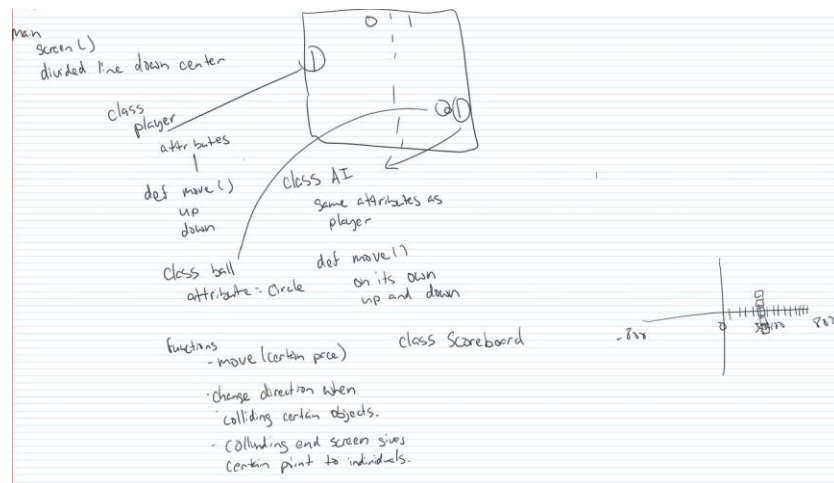 main
screen()
divided line down center
0 1
class
player
attributes
def move()
up
down
class AI
same attributes as
player
def move()
on its own
up and down
class ball
attribute = Circle
functions
- move (certain pace)
- change direction when
colliding certain objects.
- colliding end screen gives
certain point to individuals.
class Scoreboard
-800
0
800